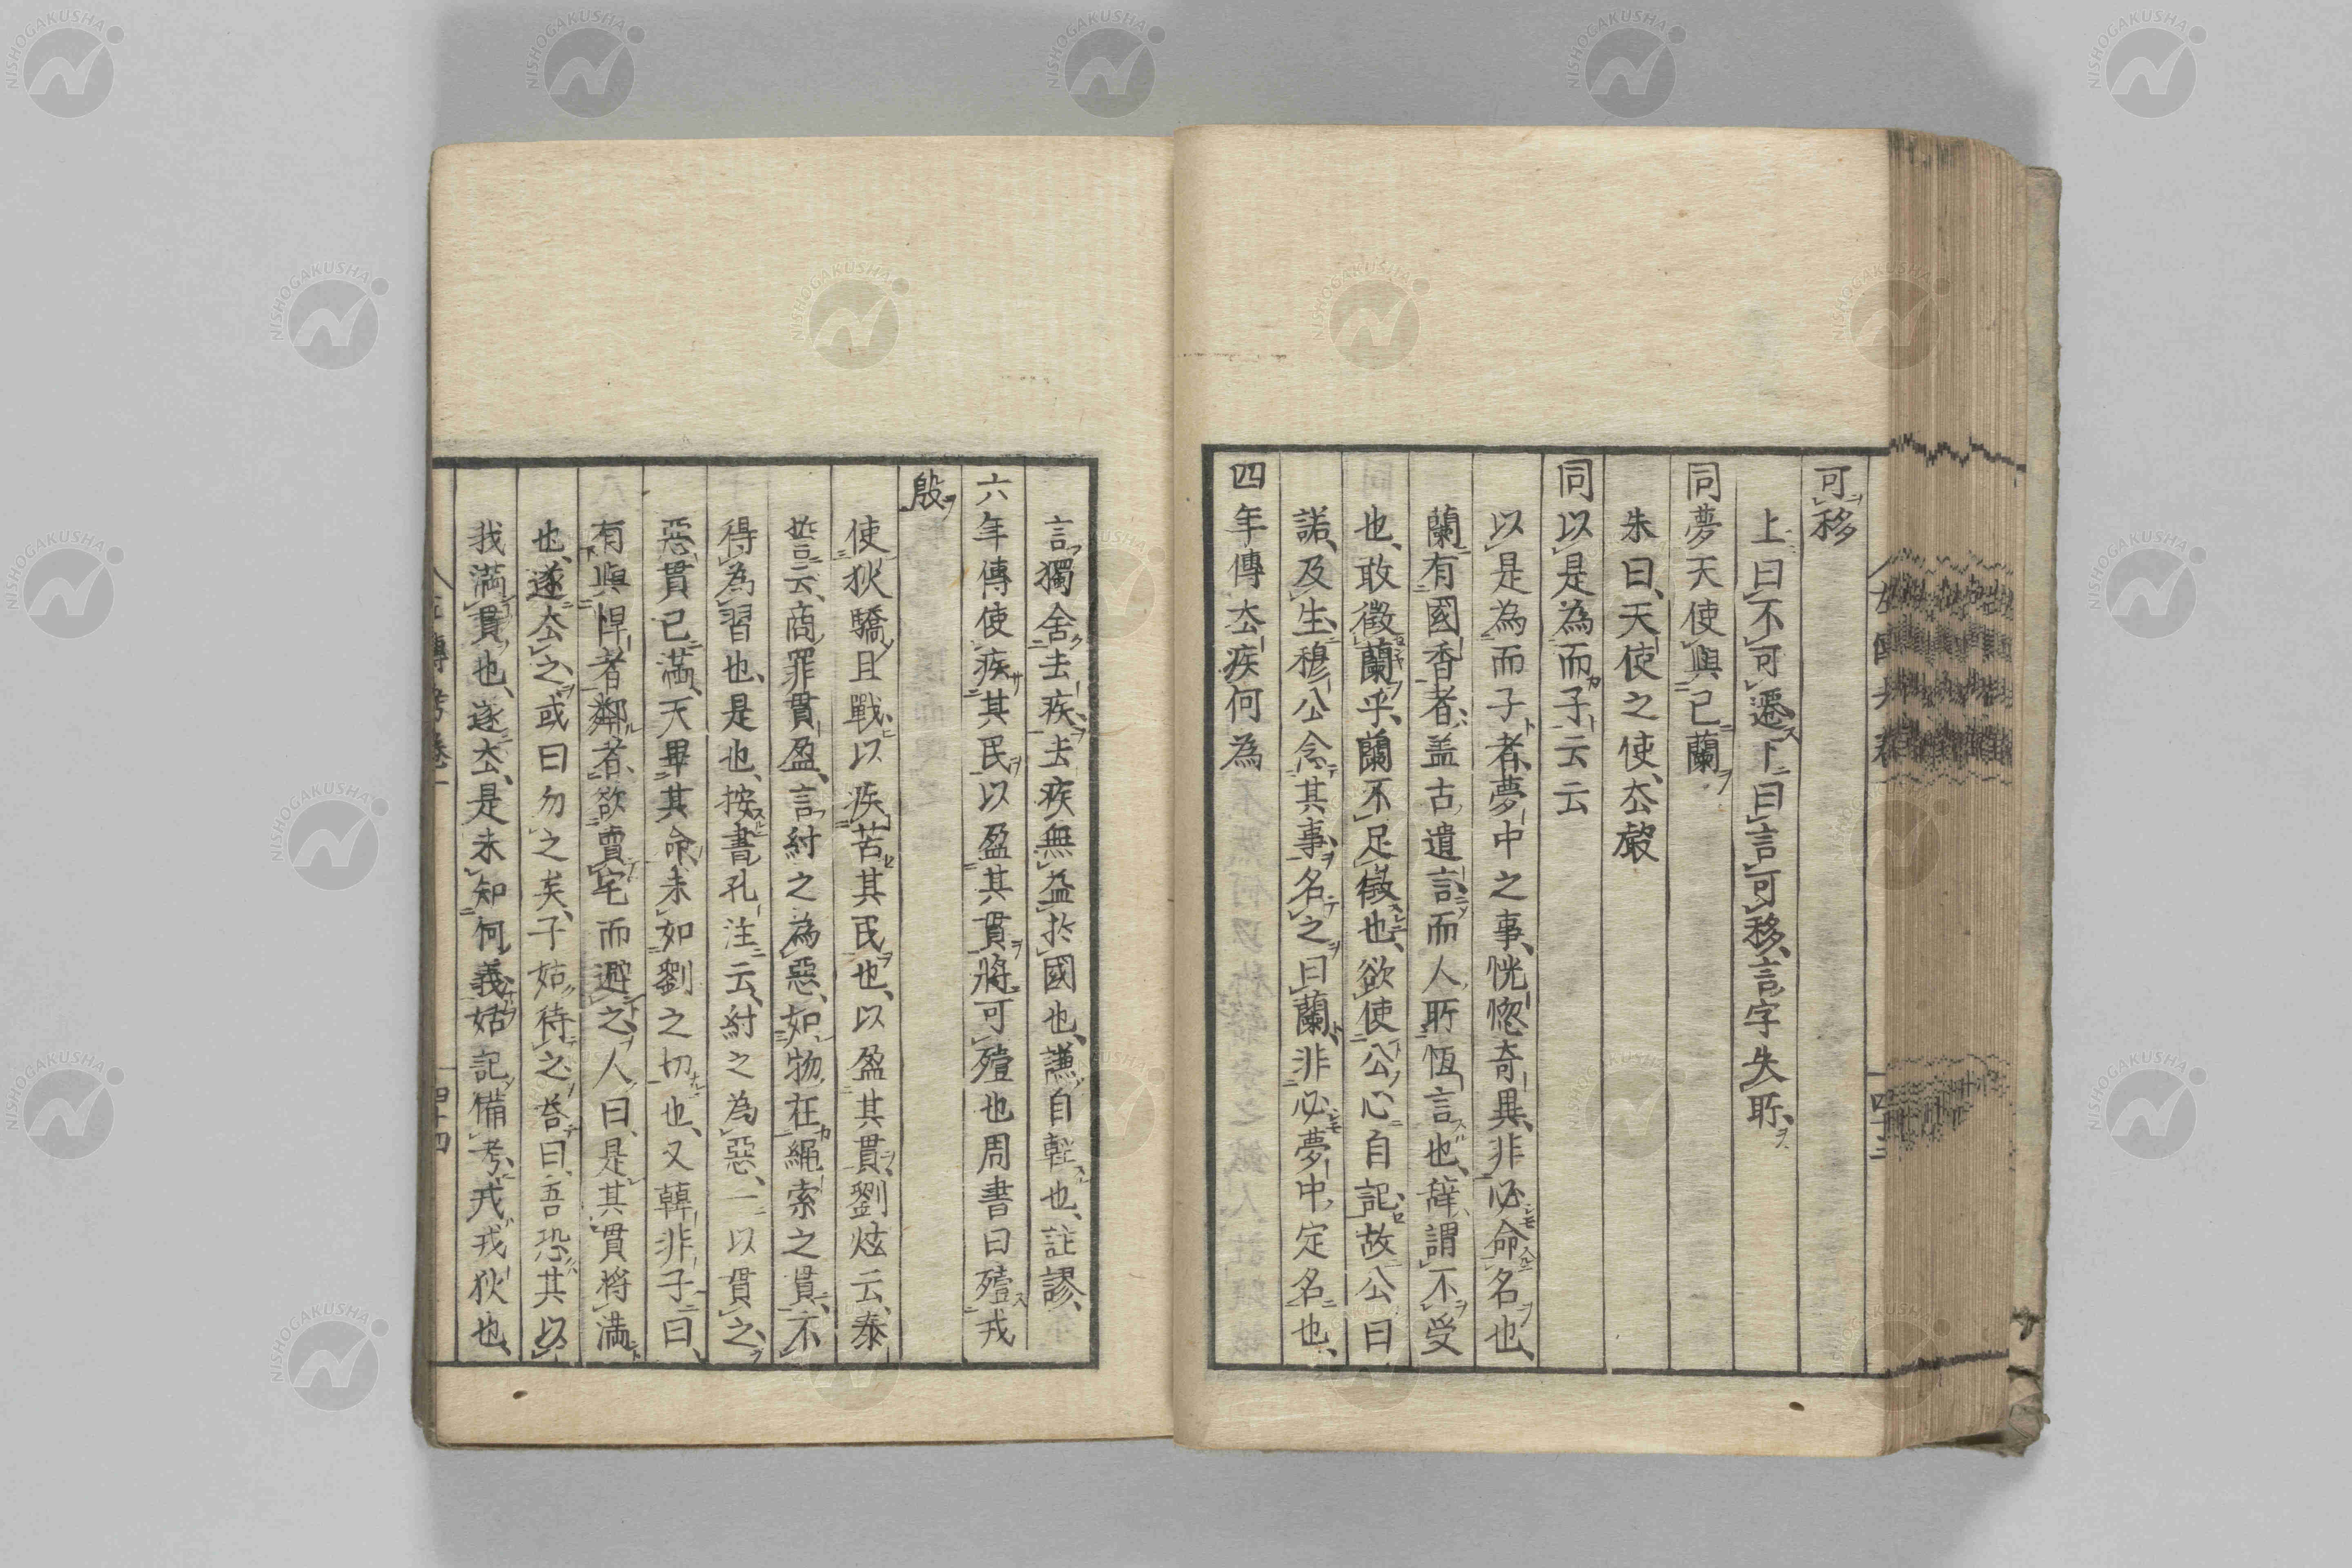 可移
上曰不可遷下曰言可移言字失所
同夢天使與己蘭
朱曰天使之使厺嚴
同以是為而子云云
以是為而子者夢中之事恍惚奇異非必命名也
蘭有國香者盖古遺言而人所恆言也辭謂不受
也敢徵蘭乎蘭不足徵也欲使公心自記故公曰
諾及生穆公念其事名之曰蘭非必夢中定名也
四年傳厺疾何為
言獨舍去疾去疾無益於國也謙自輕也註謬
六年傳使疾其民以盈其貫將可殪也周書曰殪戎
殷
使狄驕且戰以疾苦其民也以盈其貫劉炫云泰
誓云商罪貫盈言紂之為惡如物在繩索之貫不
得為習也是也按書孔注云紂之為惡一以貫之
惡貫已滿天畢其命未如劉之切也又韓非子曰
有與悍者鄰者欲賣宅而避之人曰是其貫將滿
也遂厺之或曰勿之矣子姑待之荅曰吾恐其以
我滿貫也遂厺是未知何義姑記備考戎戎狄也
四十四
NISHOGAKUSHA